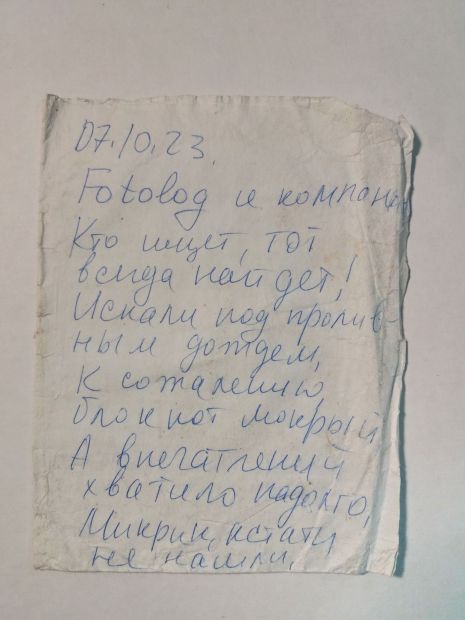 07.10.23.
Fotolog и компания
Кто ищет, тот
всегда найдет!
Искали под пролив-
ным дождем,
К сожалению,
блокнот мокрый
А впечатлений
хватило надолго,
кстати
не нашли.